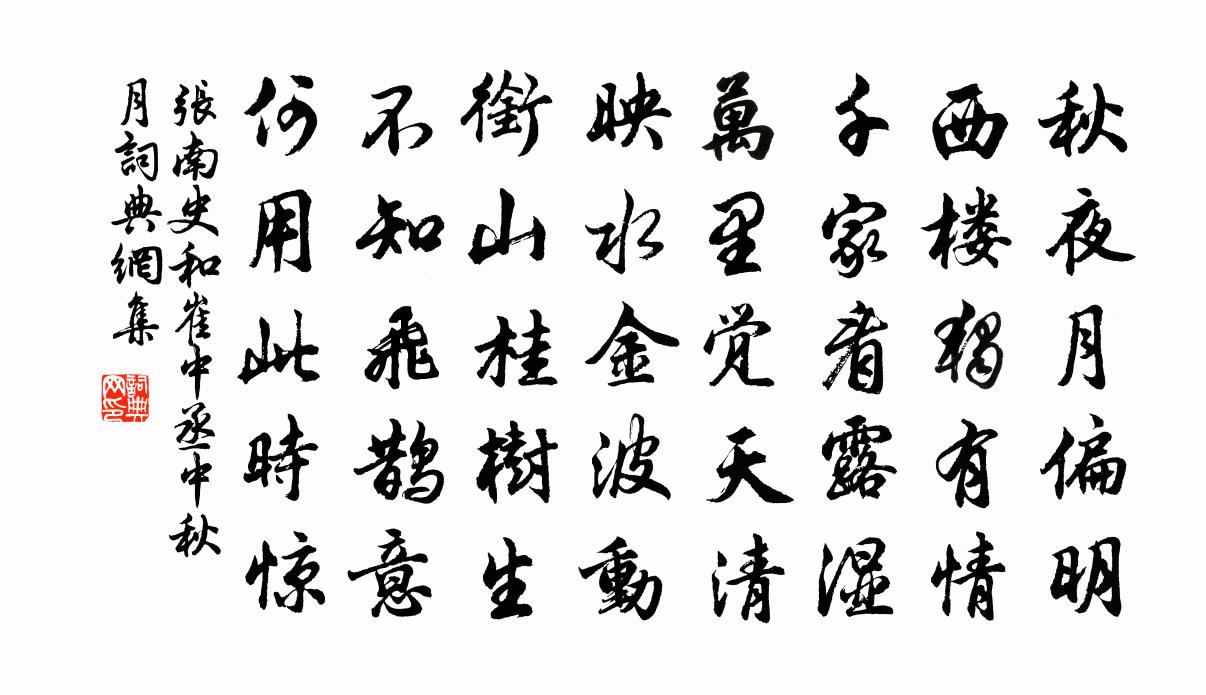 秋夜月偏明
西楼獨有情
千家看露湿
萬里覚天清
映水金波動
銜山桂樹生
不知飛鵲意
何用此時惊
張南史和崔中丞中秋
月詞典網集
詞典
网印